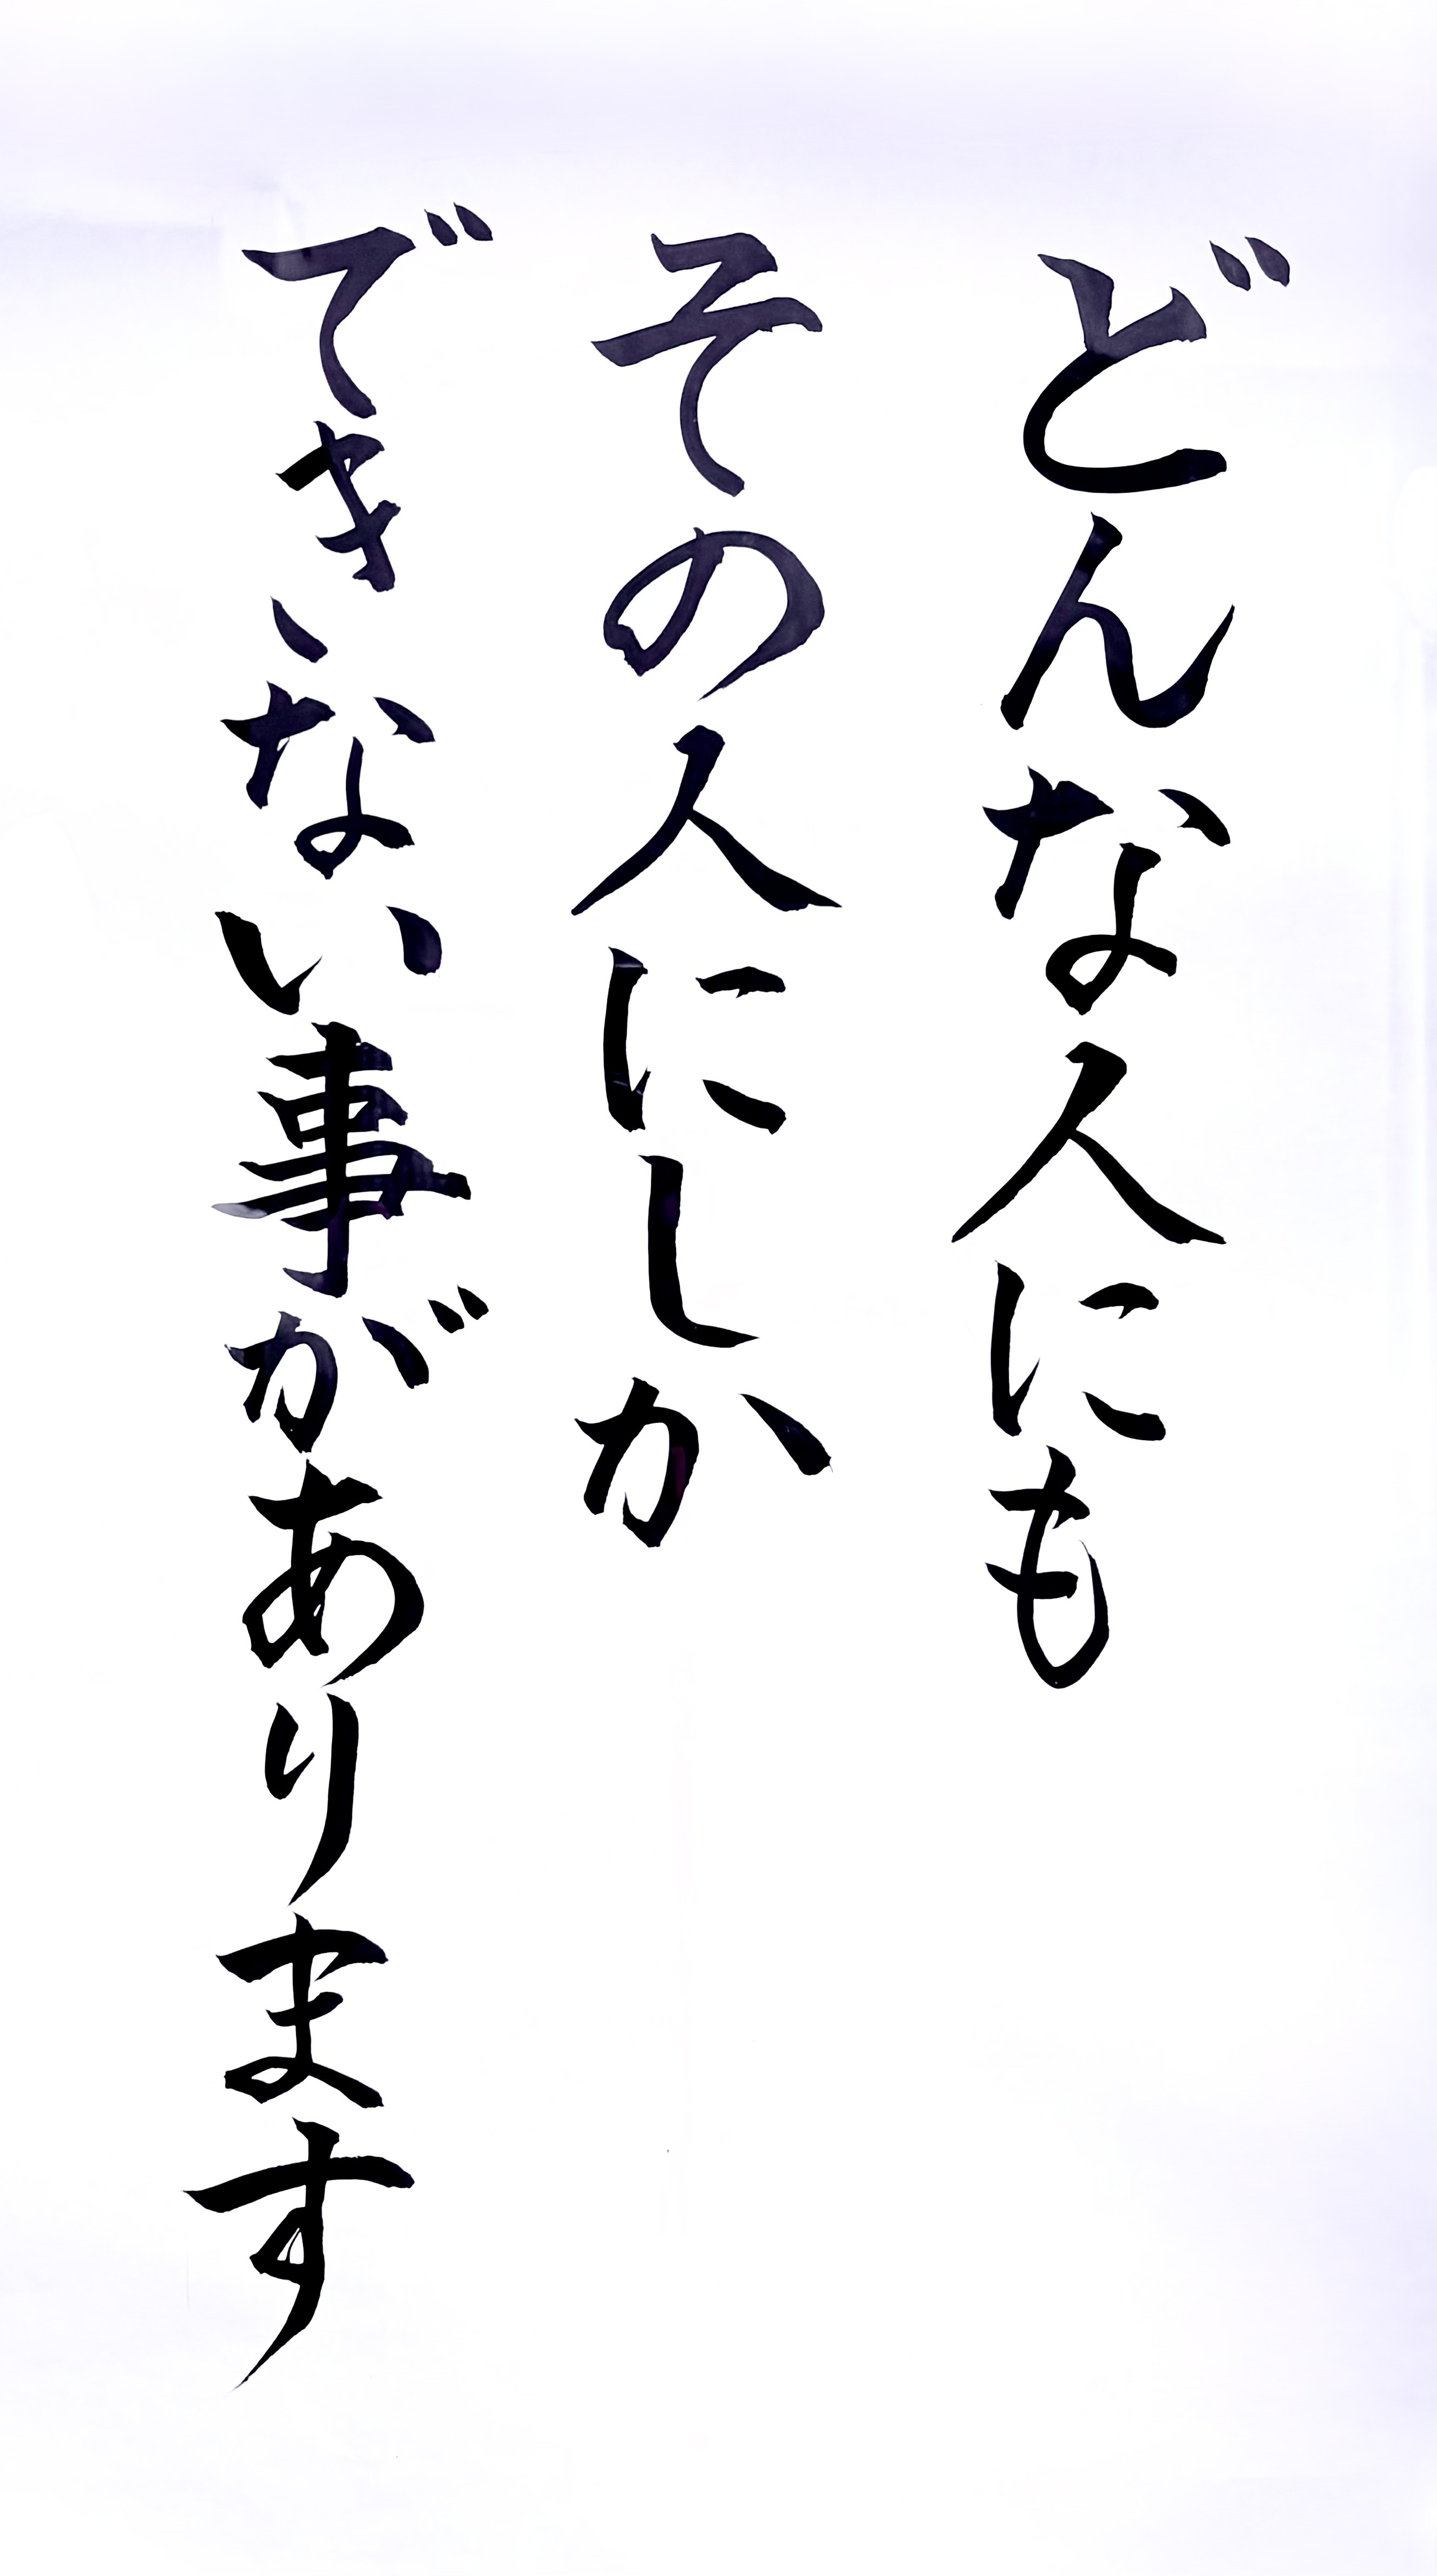 どんな人にも
その人にしか
できない事があります